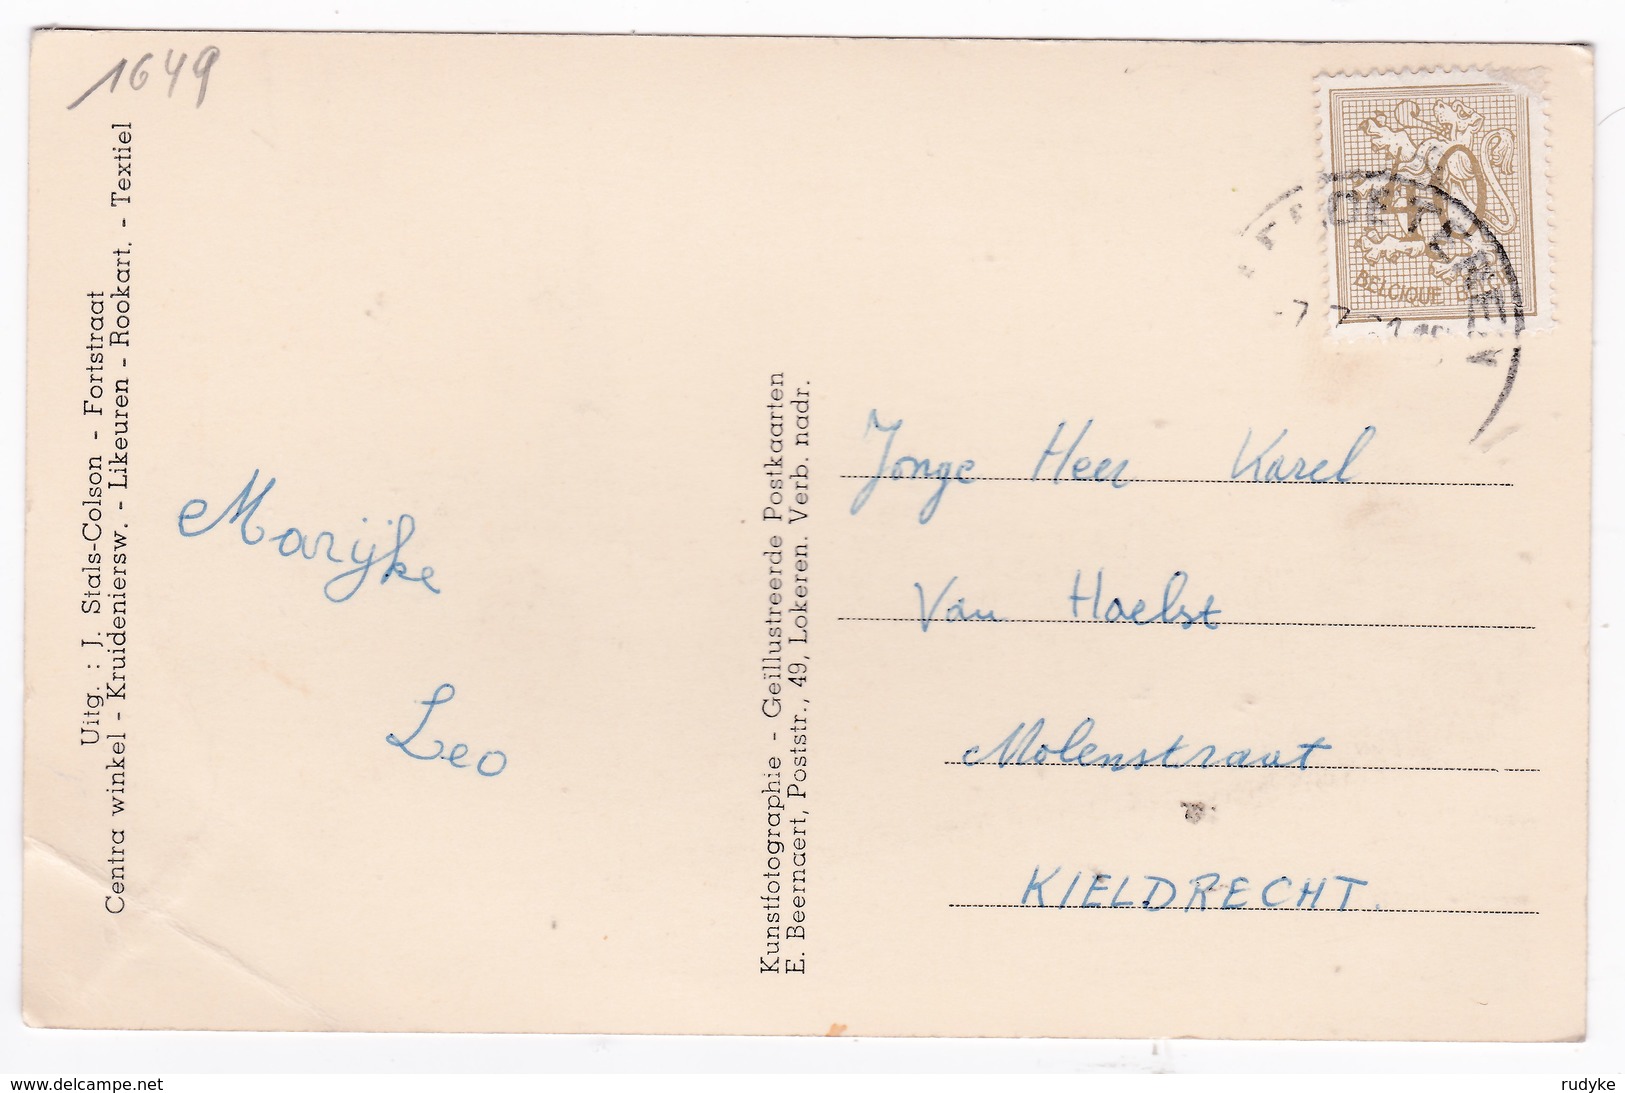 1649
Uitg. : J. Stals-Colson - Fortstraat
Centra winkel - Kruideniersw. - Likeuren - Rookart. - Textiel
Marijke
Leo
Kunstfotographie - Geïllustreerde Postkaarten
E. Beernaert, Poststr., 49, Lokeren. Verb. nadr.
40
BELGIQUE
Jonge Heer Karel
Van Haelst
Molenstraat
KIELDRECHT.
www.delcampe.net
rudyke